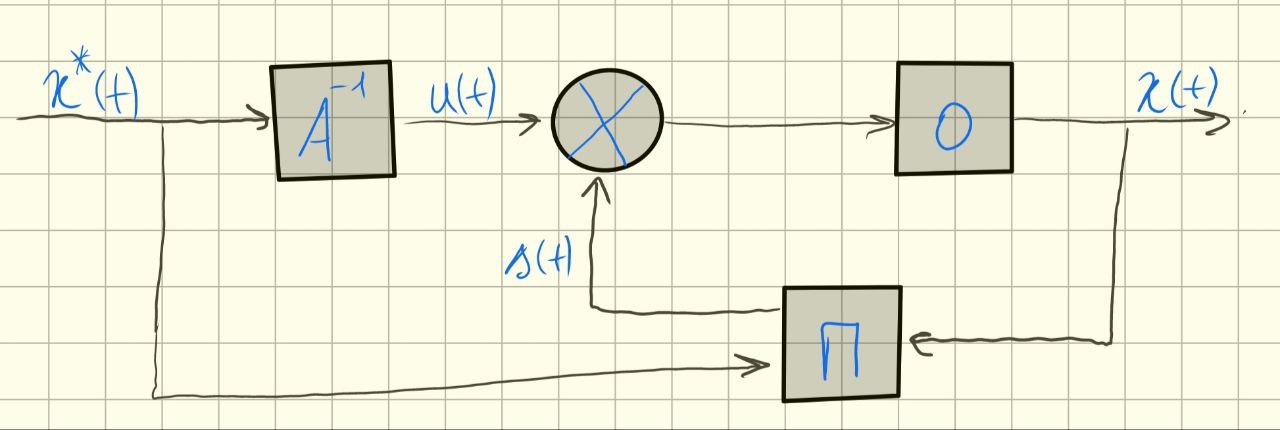 x*(t)
A⁻¹
u(t)
O
x(t)
s(t)
П